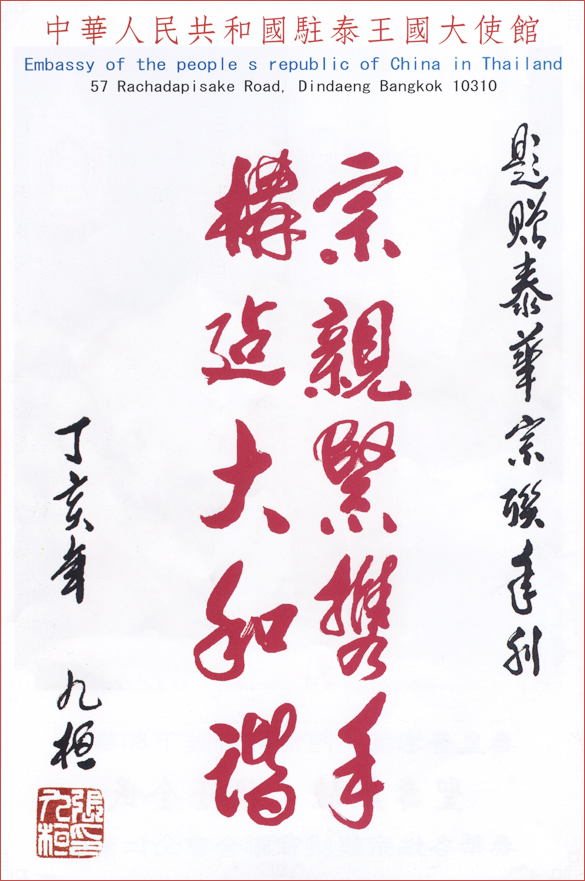 中華人民共和國駐泰王國大使館
Embassy of the people s republic of China in Thailand
57 Rachadapisake Road, Dindaeng Bangkok 10310
題贈泰華宗聯年刊
宗親緊携手
構造大和諧
丁亥年 九桓
張九桓印